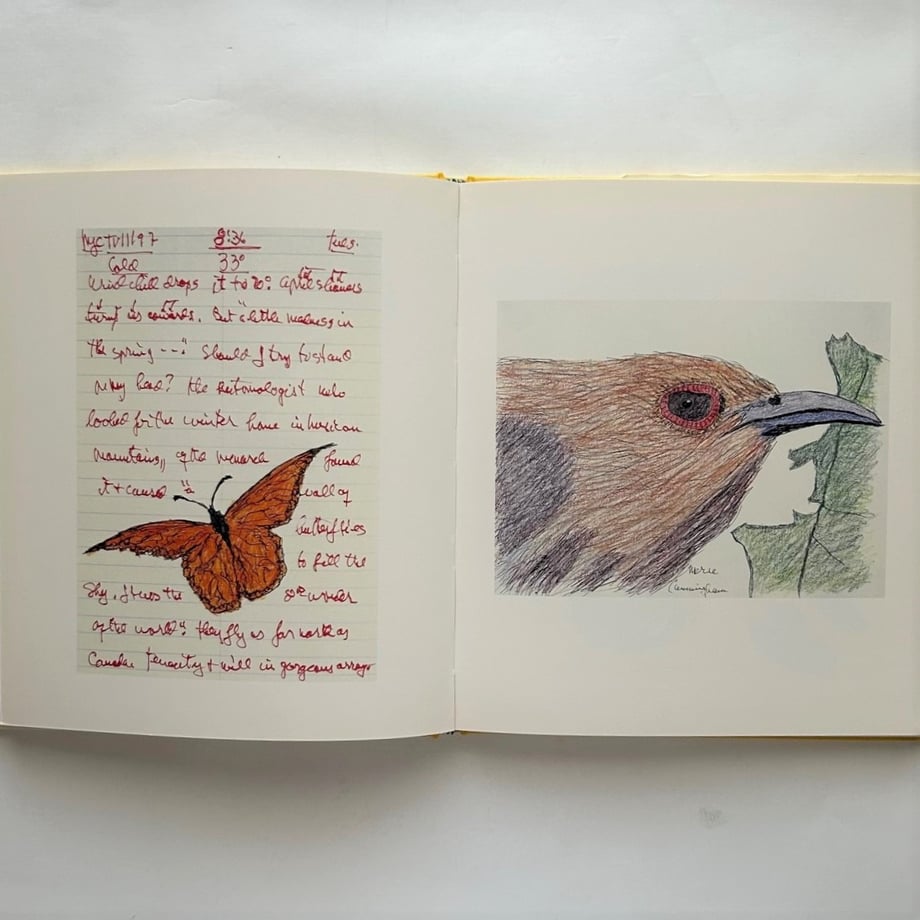 NYC 8:30 Tues.
Cold 33°
Wind chill drops it to 20°. April's showers
turns us cowards. But "a little madness in
the spring ---" Should I try to stand
on my head? The entomologist who
looked for the winter home in mexican
mountains, of the monarch found
it + caused "a wall of
butterflies
to fill the
sky. It was the 8th wonder
of the world". They fly as far north as
Canada tenacity + will in gorgeous array
Merce
Cunningham